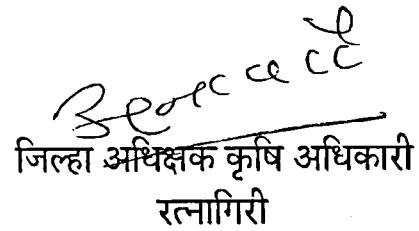 जिल्हा अधिक्षक कृषि अधिकारी
रत्नागिरी